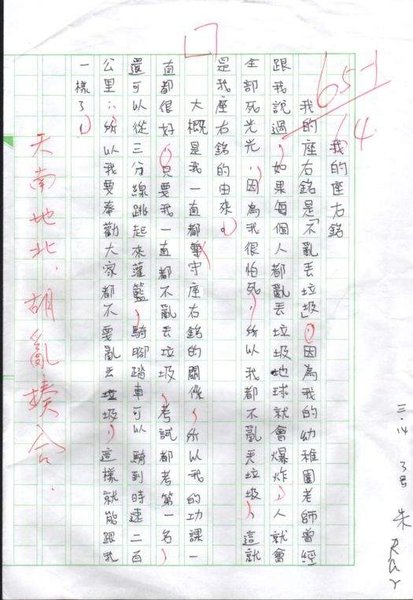 三.14 3号 朱 RAY
65-1
64
我的座右銘
我的座右銘是「不亂丟垃圾」，因為我的幼稚園老師曾經
跟我說過，如果每個人都亂丟垃圾地球就會爆炸，人就會
全部死光光，因為我很怕死，所以我都不亂丟垃圾，這就
是我座右銘的由來。
大概是我一直都遵守座右銘的關係，所以我的功課一
直都很好，只要我一直都不亂丟垃圾，考試都考第一名，
還可以從三分線跳起來灌籃，騎腳踏車可以騎到時速二百
公里…所以我要奉勸大家都不要亂丟垃圾，這樣就能跟我
一樣了。
天南地北.胡亂揍合.